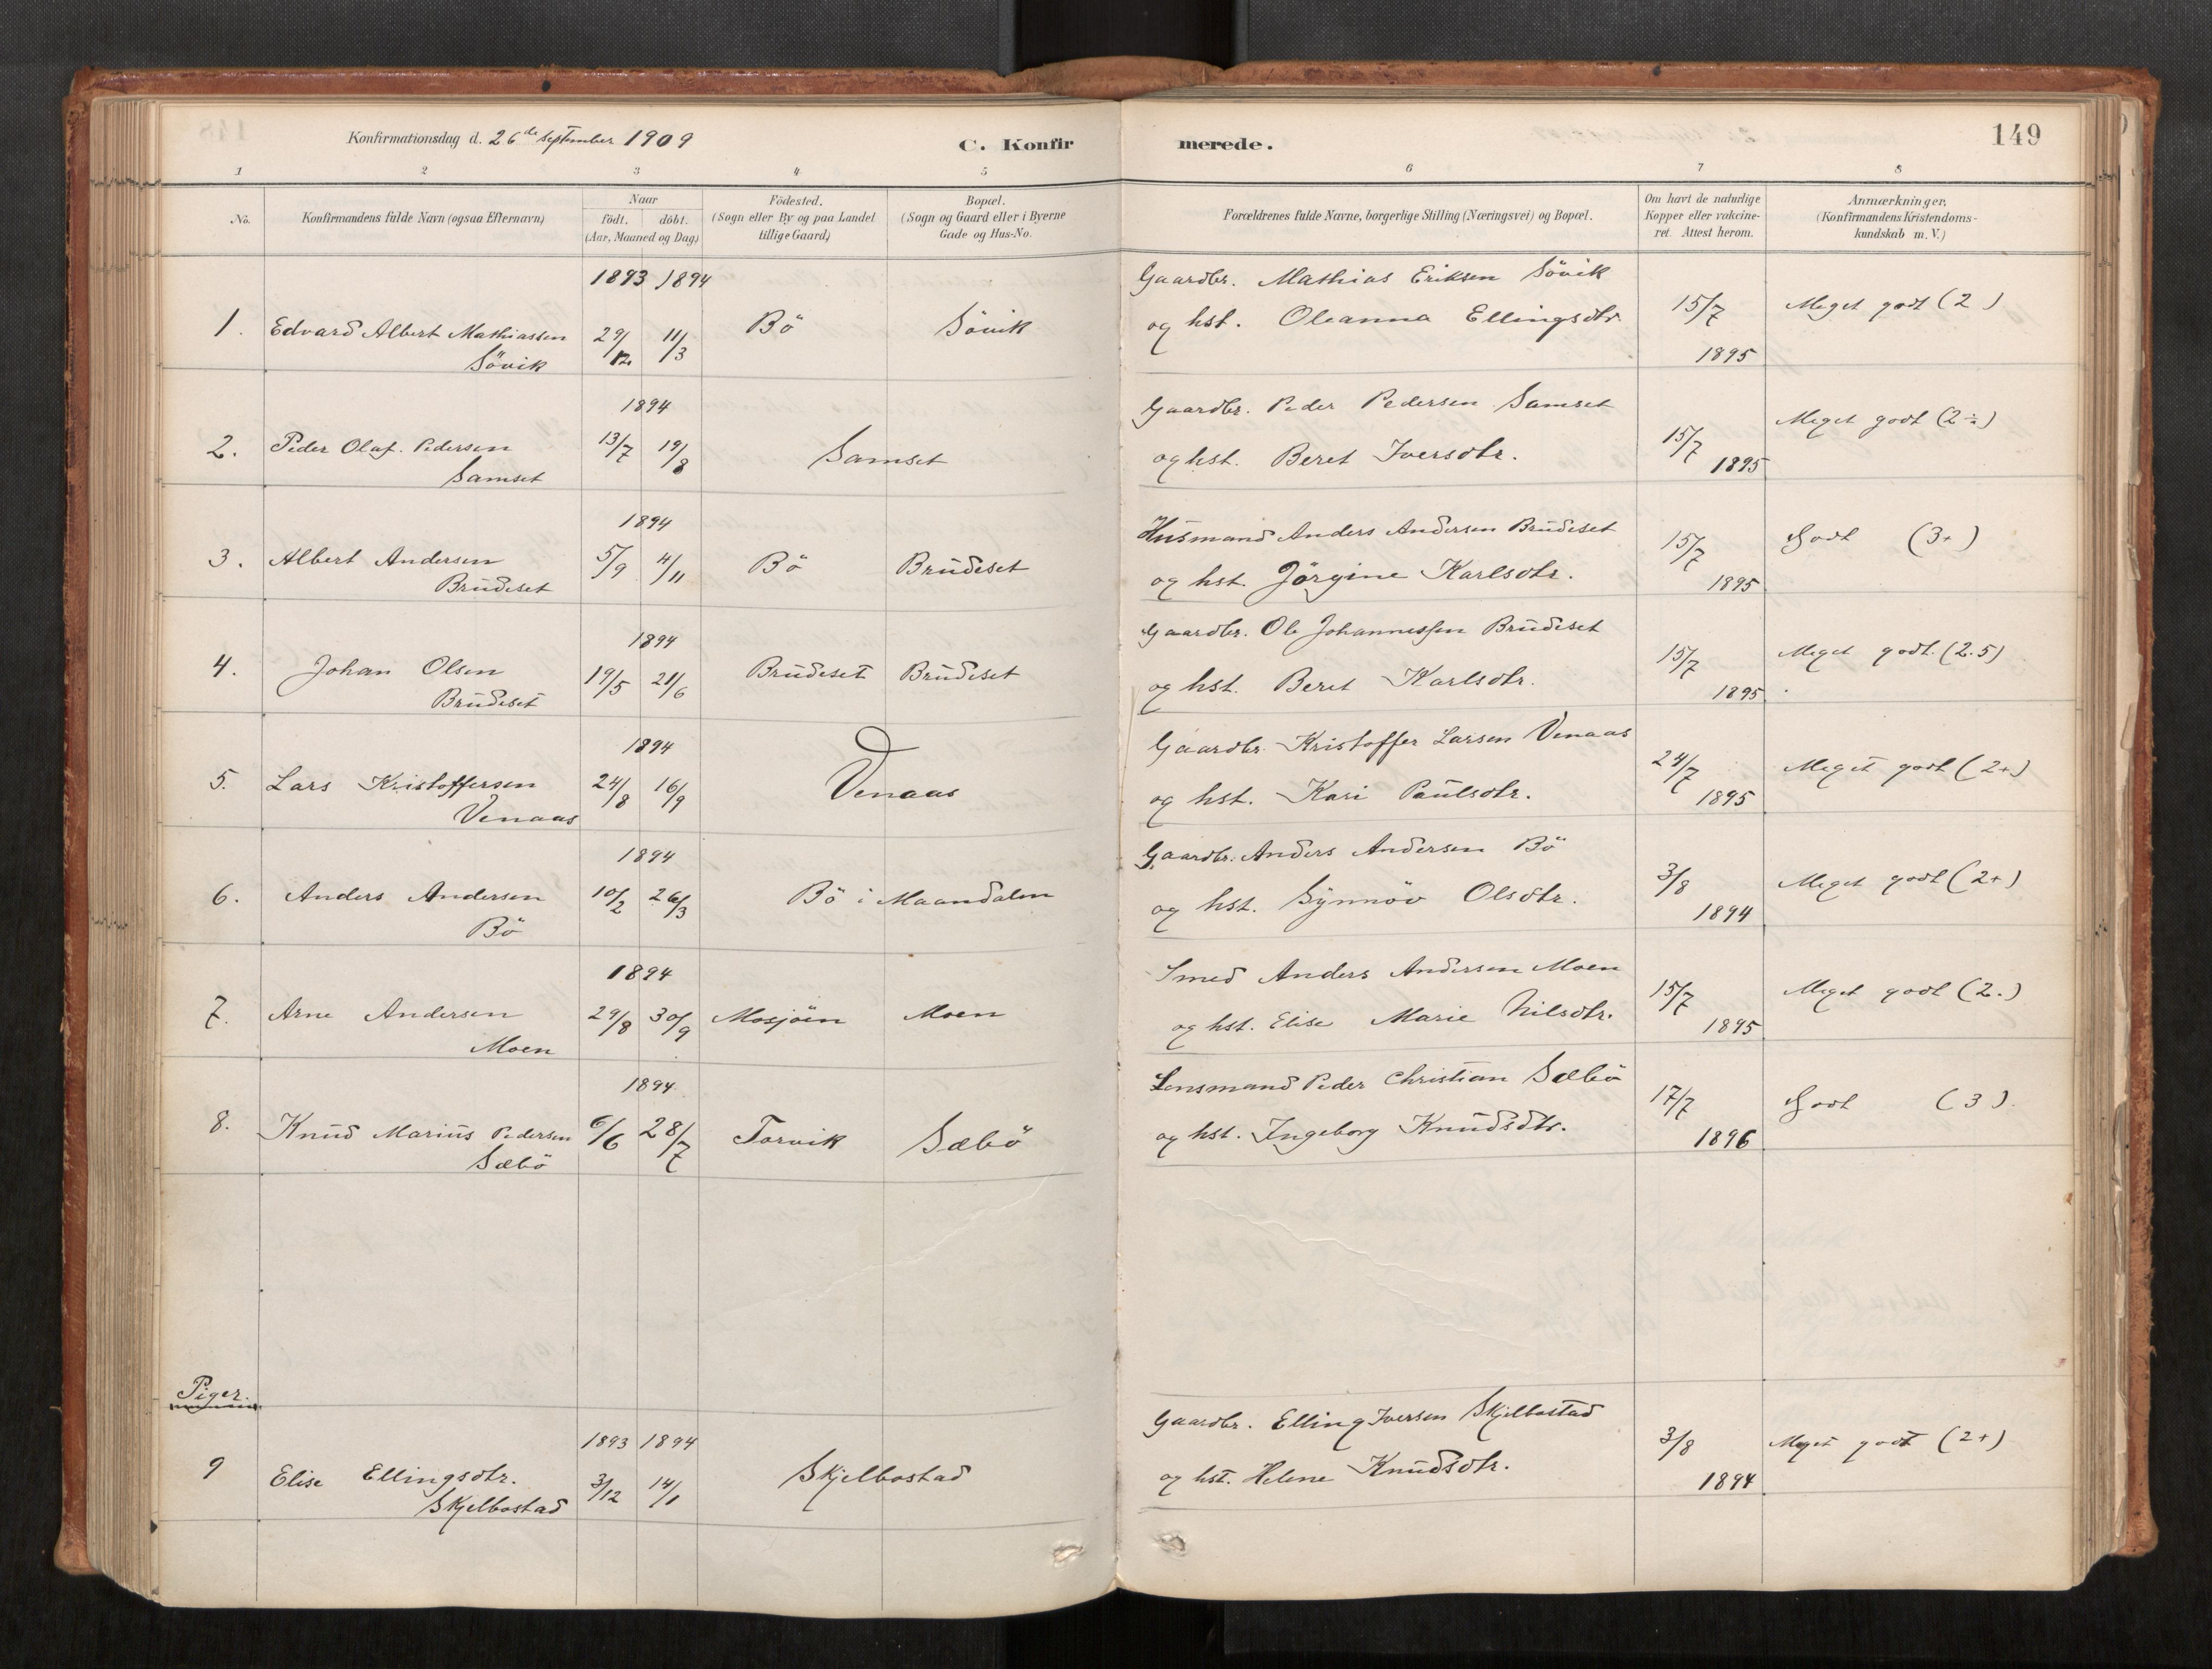 Konfirmationsdag d. 26de September 1909
C. Konfirmerede.
149
1 2 3 4 5 6 7 8
No.
Konfirmandens fulde Navn (ogsaa Efternavn)
Naar
födt. döbt.
(Aar, Maaned og Dag)
Födested.
(Sogn eller By og paa Landet
tillige Gaard)
Bopæl.
(Sogn og Gaard eller i Byerne
Gade og Hus-No.
Forældrenes fulde Navne, borgerlige Stilling (Næringsvei) og Bopæl.
Om havt de naturlige
Kopper eller vakcine-
ret. Attest herom.
Anmærkninger.
(Konfirmandens Kristendoms-
kundskab m. V.)
1893 1894
1. Edvard Albert Mathiassen 29/12 11/3 Bö Sövik
Sövik
Gaardbr. Mathias Eriksen Sövik
og hst. Oleanna Ellingsdtr. 15/7 Meget godt (2)
1895
1894
2. Peder Olaf Pedersen 13/7 19/8 Samset
Samset
Gaardbr. Peder Pedersen Samset
og hst. Beret Iversdtr. 15/7 Meget godt (2÷)
1895
1894
3. Albert Andersen 5/9 4/11 Bö Brudeset
Brudeset
Husmand Anders Andersen Brudeset
og hst. Jörgine Karlsdtr. 15/7 Godt (3+)
1895
1894
4. Johan Olsen 19/5 21/6 Brudeset Brudeset
Brudeset
Gaardbr. Ole Johannessen Brudeset
og hst. Beret Karlsdtr. 15/7 Meget godt. (2.5)
1895
1894
5. Lars Kristoffersen 24/8 16/9 Venaas
Venaas
Gaardbr. Kristoffer Larsen Venaas
og hst. Kari Paulsdtr. 24/7 Meget godt (2+)
1895
1894
6. Anders Andersen 10/2 26/3 Bö i Maandalen
Bö
Gaardbr. Anders Andersen Bö
og hst. Synnöv Olsdtr. 3/8 Meget godt (2+)
1894
1894
7. Arne Andersen 29/8 30/9 Mosjöen Moen
Moen
Smed Anders Andersen Moen
og hst. Elise Marie Nilsdtr. 15/7 Meget godt (2.)
1895
1894
8. Knud Marius Pedersen 6/6 28/7 Torvik Sæbö
Sæbö
Lensmand Peder Christian Sæbö
og hst. Ingeborg Knudsdtr. 17/7 Godt (3).
1896
Piger.
1893 1894
9 Elise Ellingsdtr. 3/12 14/1 Skjelbostad
Skjelbostad
Gaardbr. Elling Iversen Skjelbostad
og hst. Helene Knudsdtr. 3/8 Meget godt (2+)
1894